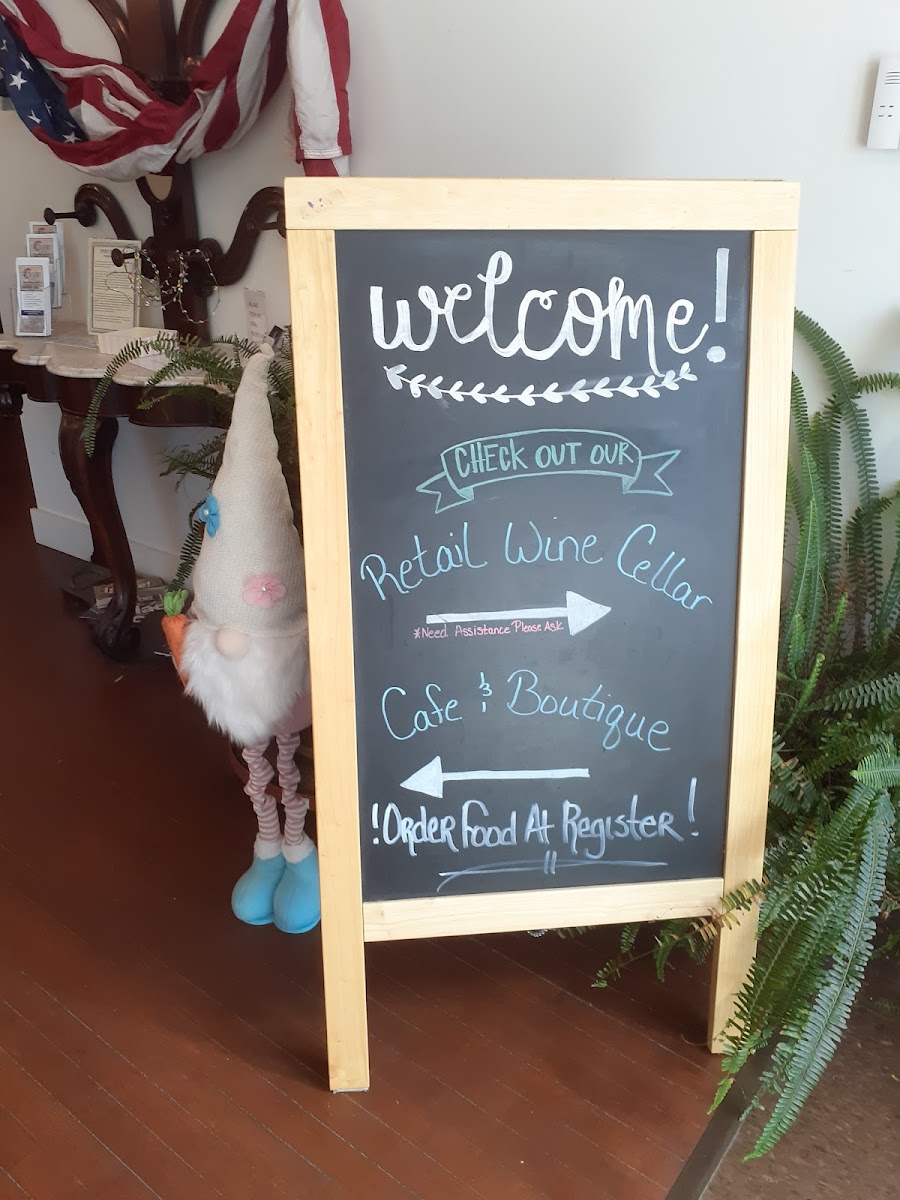 welcome!
CHECK OUT OUR
Retail Wine Cellar
*Need Assistance Please Ask
Cafe & Boutique
!Order Food At Register!